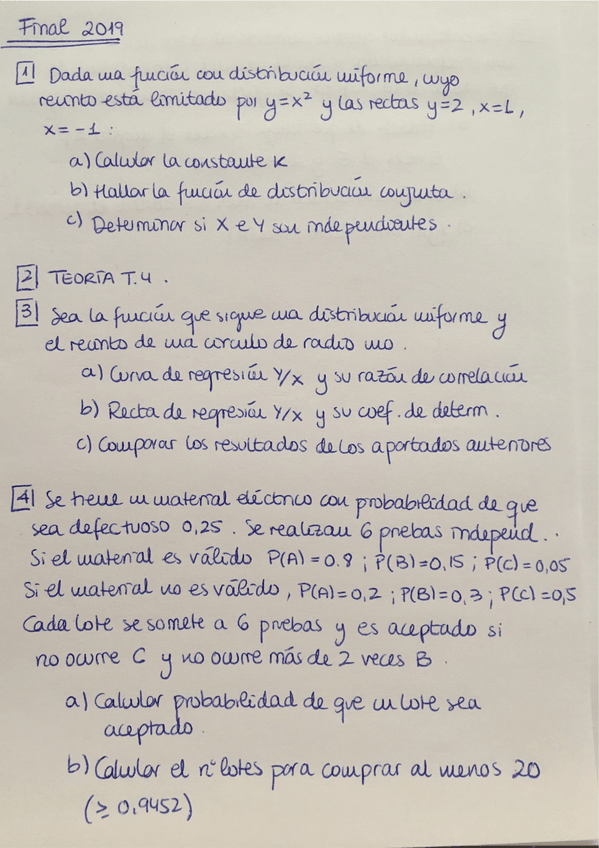 Final 2019
1 Dada una función con distribución uniforme, cuyo
recinto está limitado por y=x² y las rectas y=2, x=1,
x=-1:
a) Calcular la constante K
b) Hallar la función de distribución conjunta.
c) Determinar si X e Y son independientes.
2 TEORÍA T.4.
3 Sea la función que sigue una distribución uniforme y
el recinto de una circulo de radio uno.
a) Curva de regresión Y/X y su razón de correlación
b) Recta de regresión Y/X y su coef. de determ.
c) Comparar los resultados de los apartados anteriores
4 Se tiene un material eléctrico con probabilidad de que
sea defectuoso 0,25. Se realizan 6 pruebas independ..
Si el material es válido P(A)=0.8; P(B)=0,15; P(C)=0,05
Si el material no es válido, P(A)=0,2; P(B)=0,3; P(C)=0,5
Cada lote se somete a 6 pruebas y es aceptado si
no ocurre C y no ocurre más de 2 veces B.
a) Calcular probabilidad de que un lote sea
aceptado.
b) Calcular el nº lotes para comprar al menos 20
(≥ 0,9452)